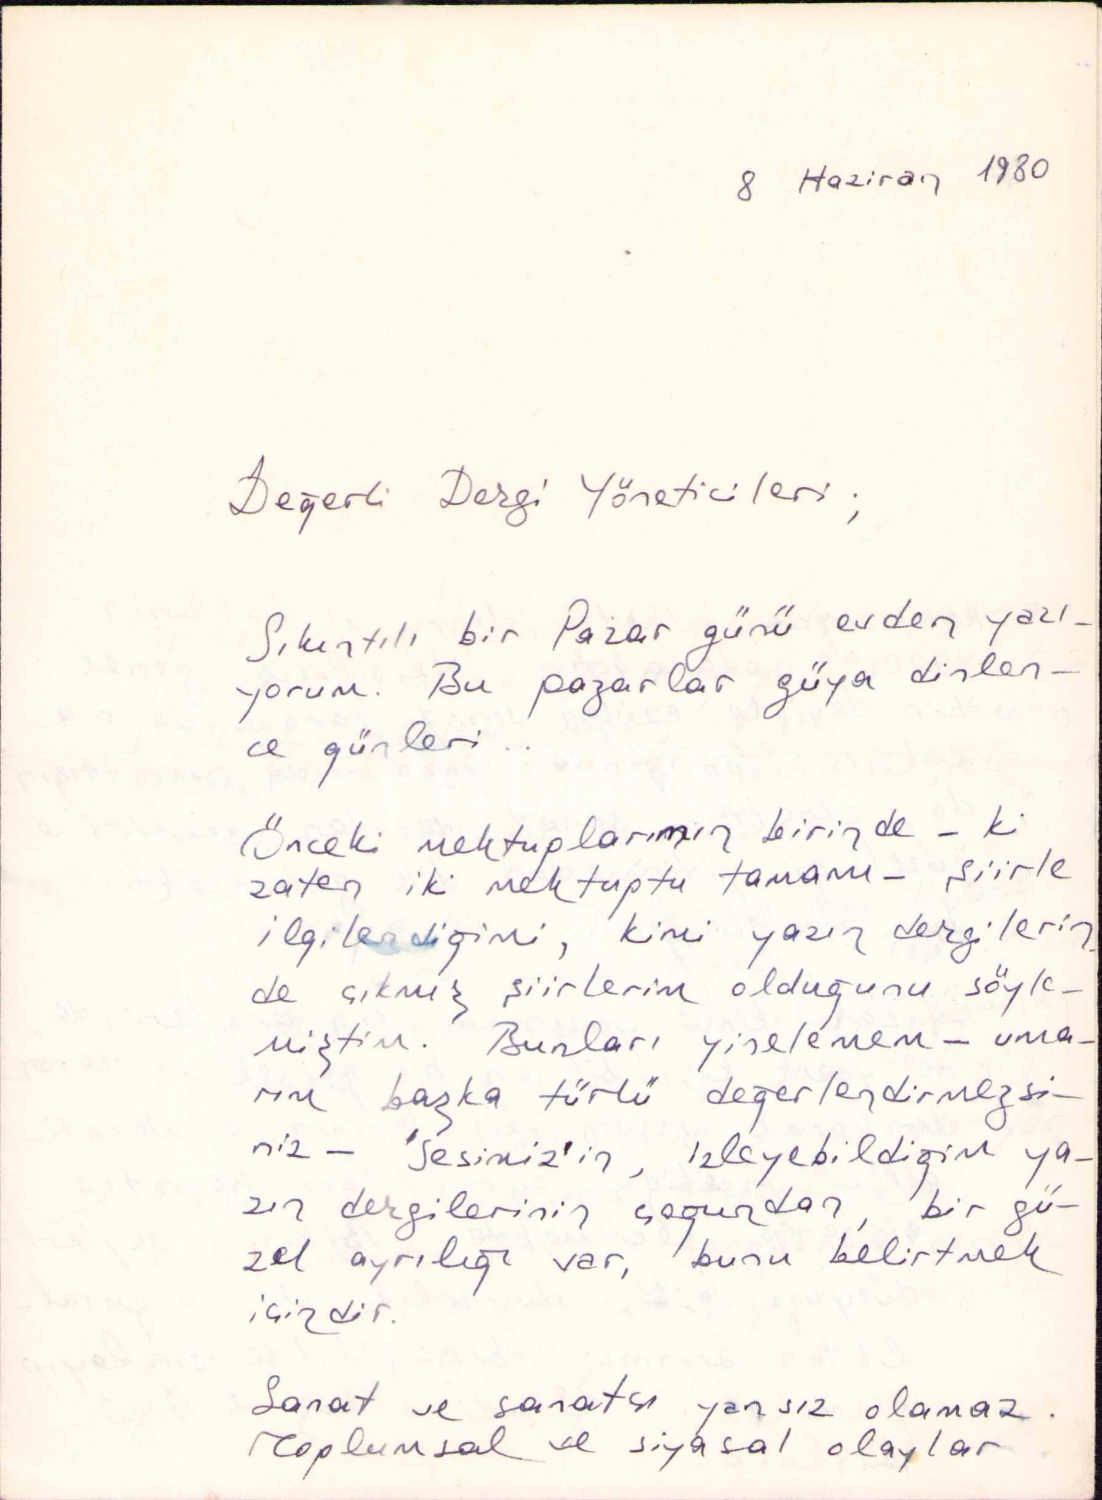 8 Haziran 1980
Değerli Dergi Yöneticileri ;
Sıkıntılı bir Pazar günü evden yazı-
yorum. Bu pazarlar güya dinlen-
ce günleri ..
Önceki mektuplarımın birinde - ki
zaten iki mektuptu tamamı - şiirle
ilgilendiğimi, kimi yazın dergilerin
de çıkmış şiirlerim olduğunu söyle-
miştim. Bunları yinelemem - uma-
rım başka türlü değerlendirmezsi-
niz - 'Sesimiz'in, izleyebildiğim ya-
zın dergilerinin çoğundan, bir gü-
zel ayrılığı var, bunu belirtmek
içindir.
Sanat ve sanatçı yansız olamaz.
Toplumsal ve siyasal olaylar